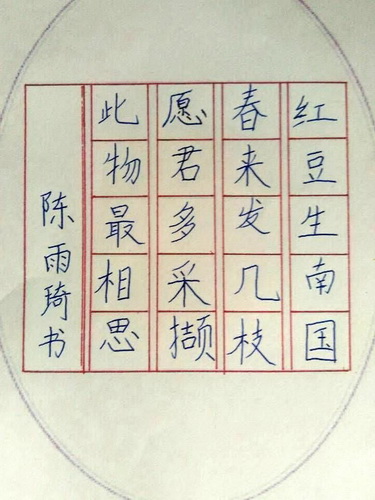 红豆生南国
春来发几枝
愿君多采撷
此物最相思
陈雨琦书